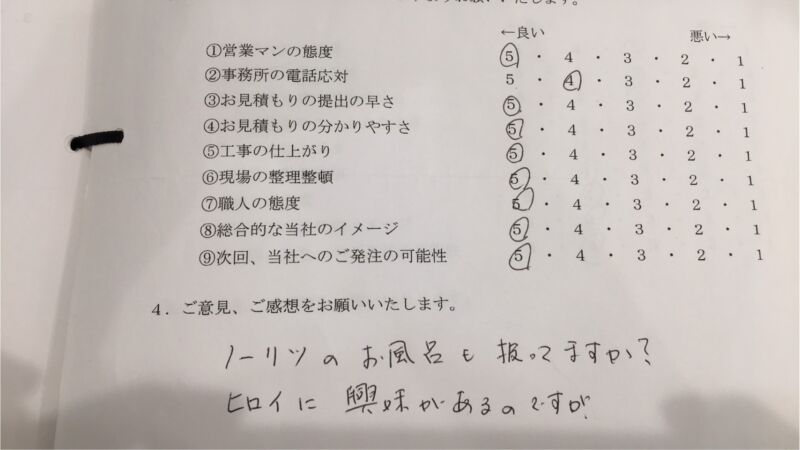 お願いいたします。
←良い 悪い→
①営業マンの態度 5 ・ 4 ・ 3 ・ 2 ・ 1
②事務所の電話応対 5 ・ 4 ・ 3 ・ 2 ・ 1
③お見積もりの提出の早さ 5 ・ 4 ・ 3 ・ 2 ・ 1
④お見積もりの分かりやすさ 5 ・ 4 ・ 3 ・ 2 ・ 1
⑤工事の仕上がり 5 ・ 4 ・ 3 ・ 2 ・ 1
⑥現場の整理整頓 5 ・ 4 ・ 3 ・ 2 ・ 1
⑦職人の態度 5 ・ 4 ・ 3 ・ 2 ・ 1
⑧総合的な当社のイメージ 5 ・ 4 ・ 3 ・ 2 ・ 1
⑨次回、当社へのご発注の可能性 5 ・ 4 ・ 3 ・ 2 ・ 1
4．ご意見、ご感想をお願いいたします。
ノーリツの お風呂も 扱ってますか？
ヒロイに 興味があるのですが